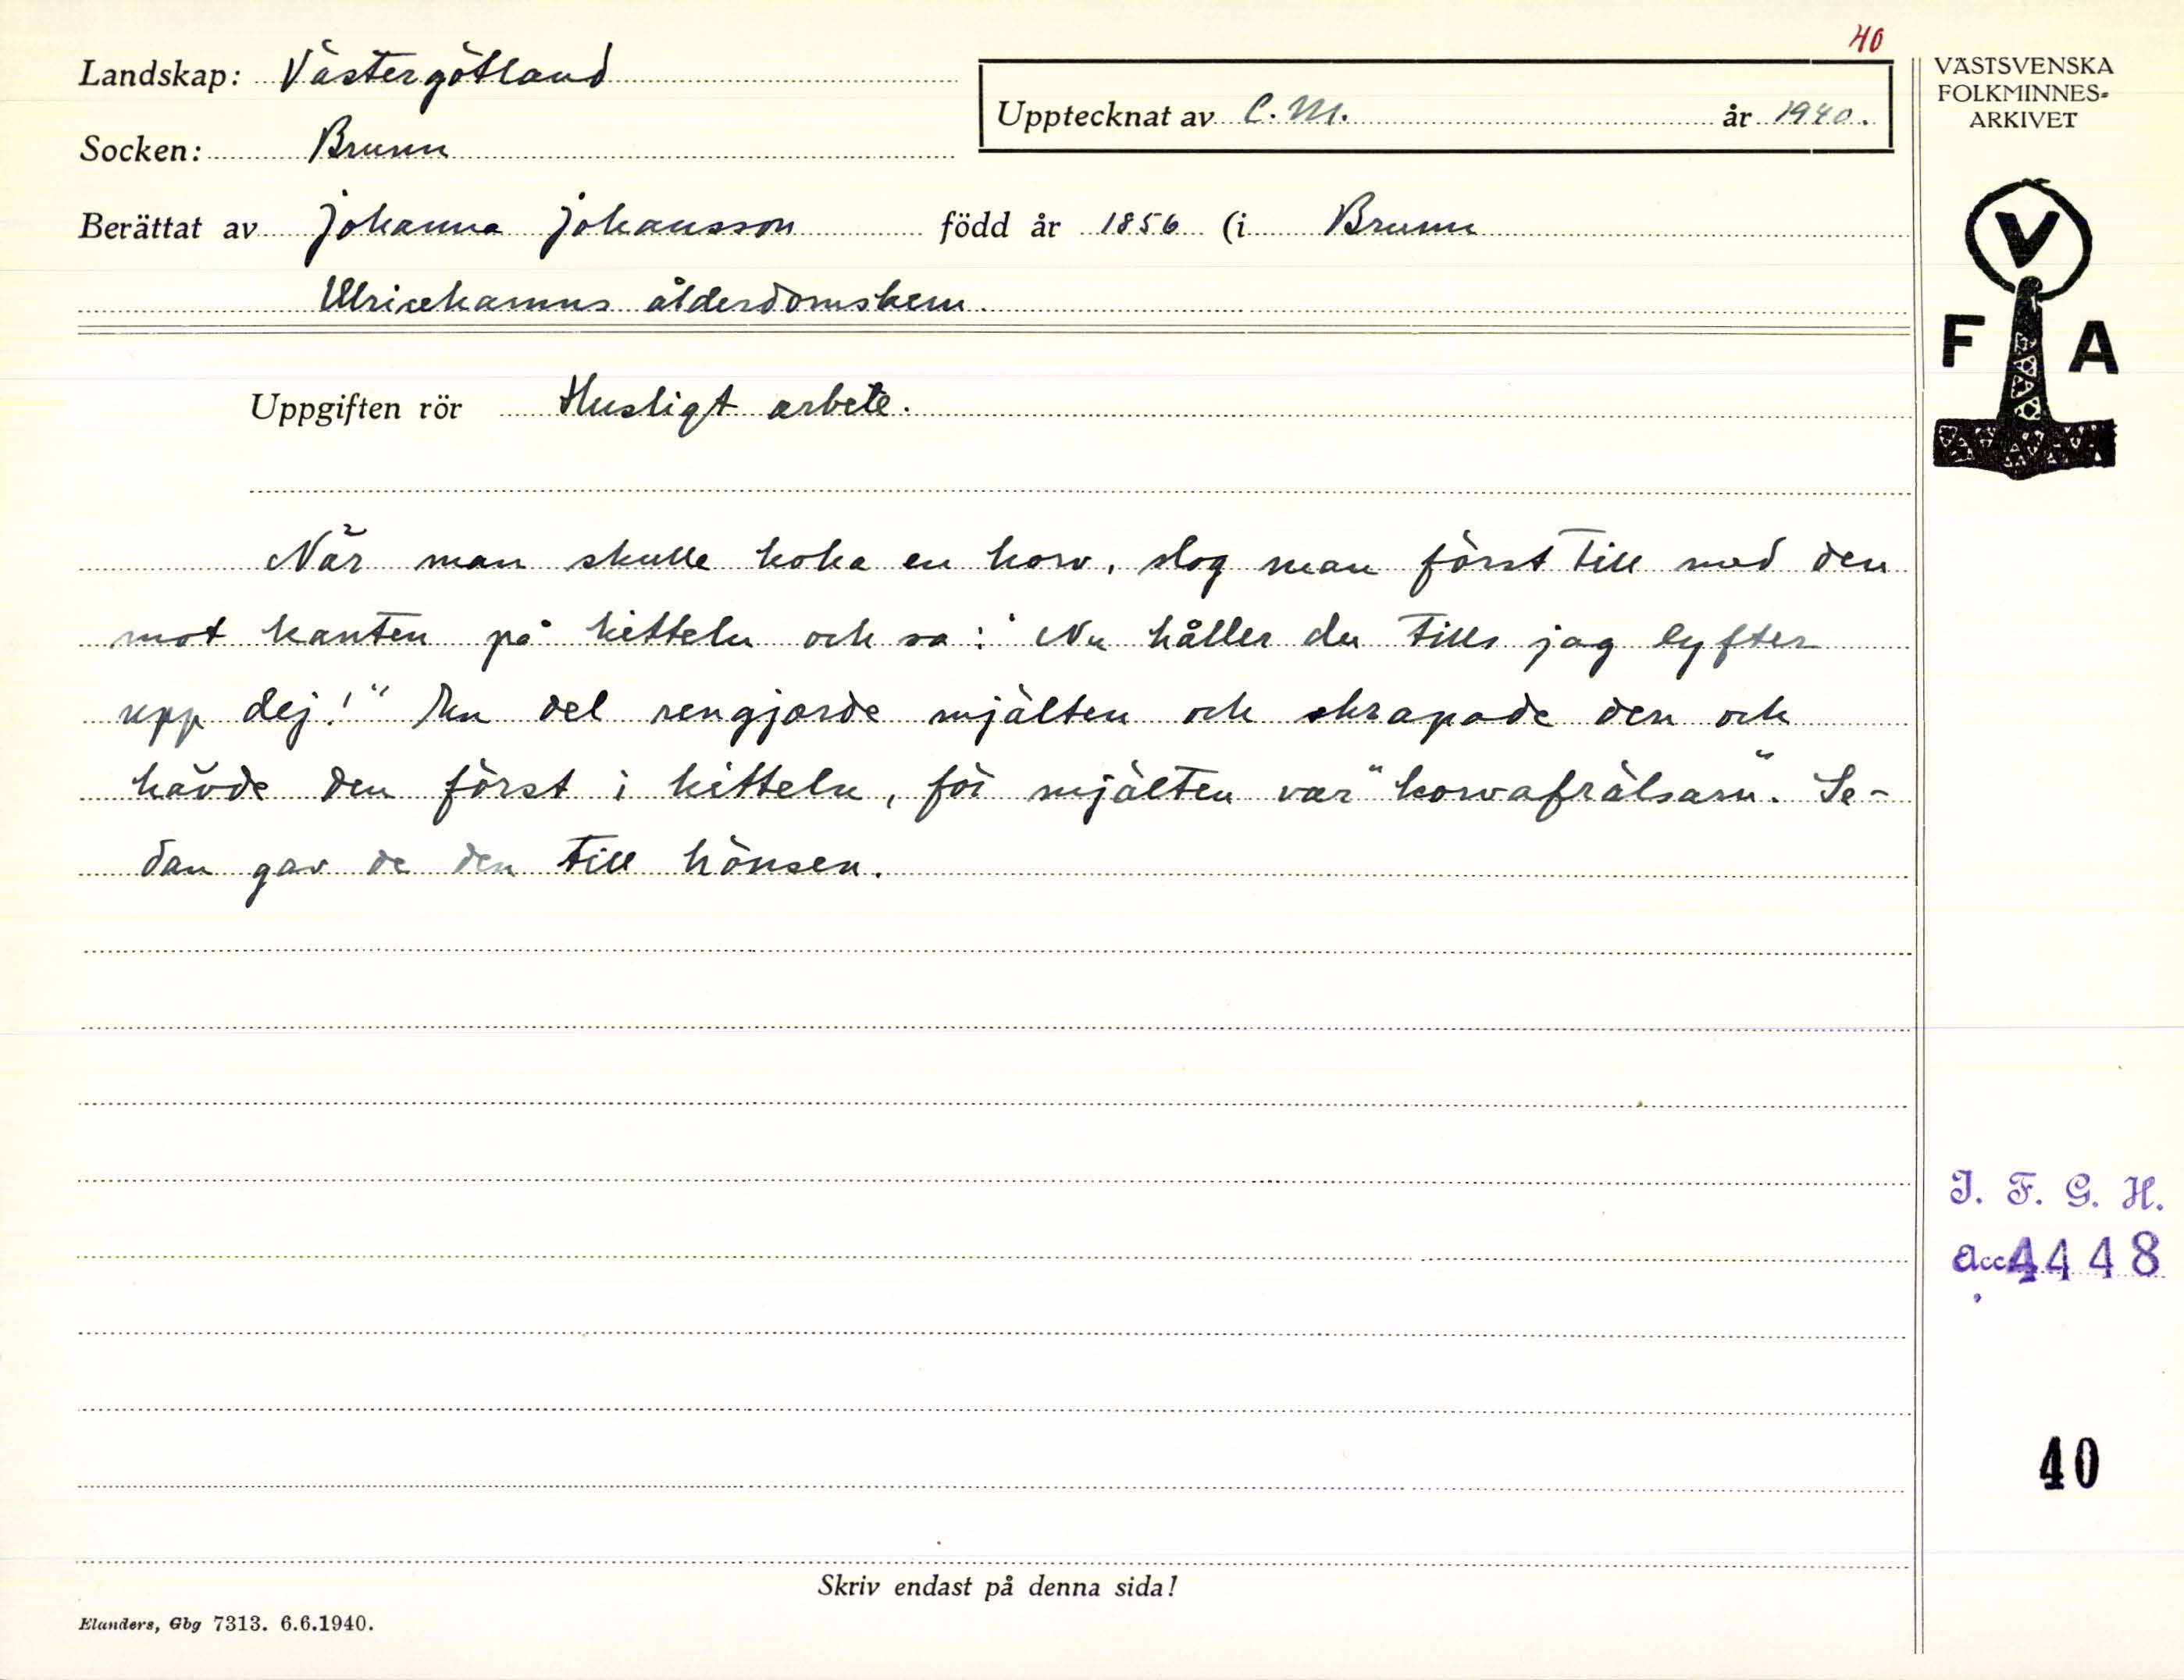 40
Landskap: Västergötland
Upptecknat av C. M. år 1940.
Socken: Brunn
Berättat av Johanna Johansson född år 1856 (i Brunn
Ulricehamns ålderdomshem.
Uppgiften rör Husligt arbete.
När man skulle koka en korv, slog man först till med den
mot kanten på kitteln och sa: "Nu håller du tills jag lyfter
upp dej!" En del rengjorde mjälten och skrapade den och
hävde den först i kitteln, för mjälten var "korvafrälsarn". Se-
dan gav de den till hönsen.
Skriv endast på denna sida!
Elanders, Gbg 7313. 6.6.1940.
VÄSTSVENSKA
FOLKMINNES-
ARKIVET
V
F A
I. F. G. H.
Acc. 4448
40